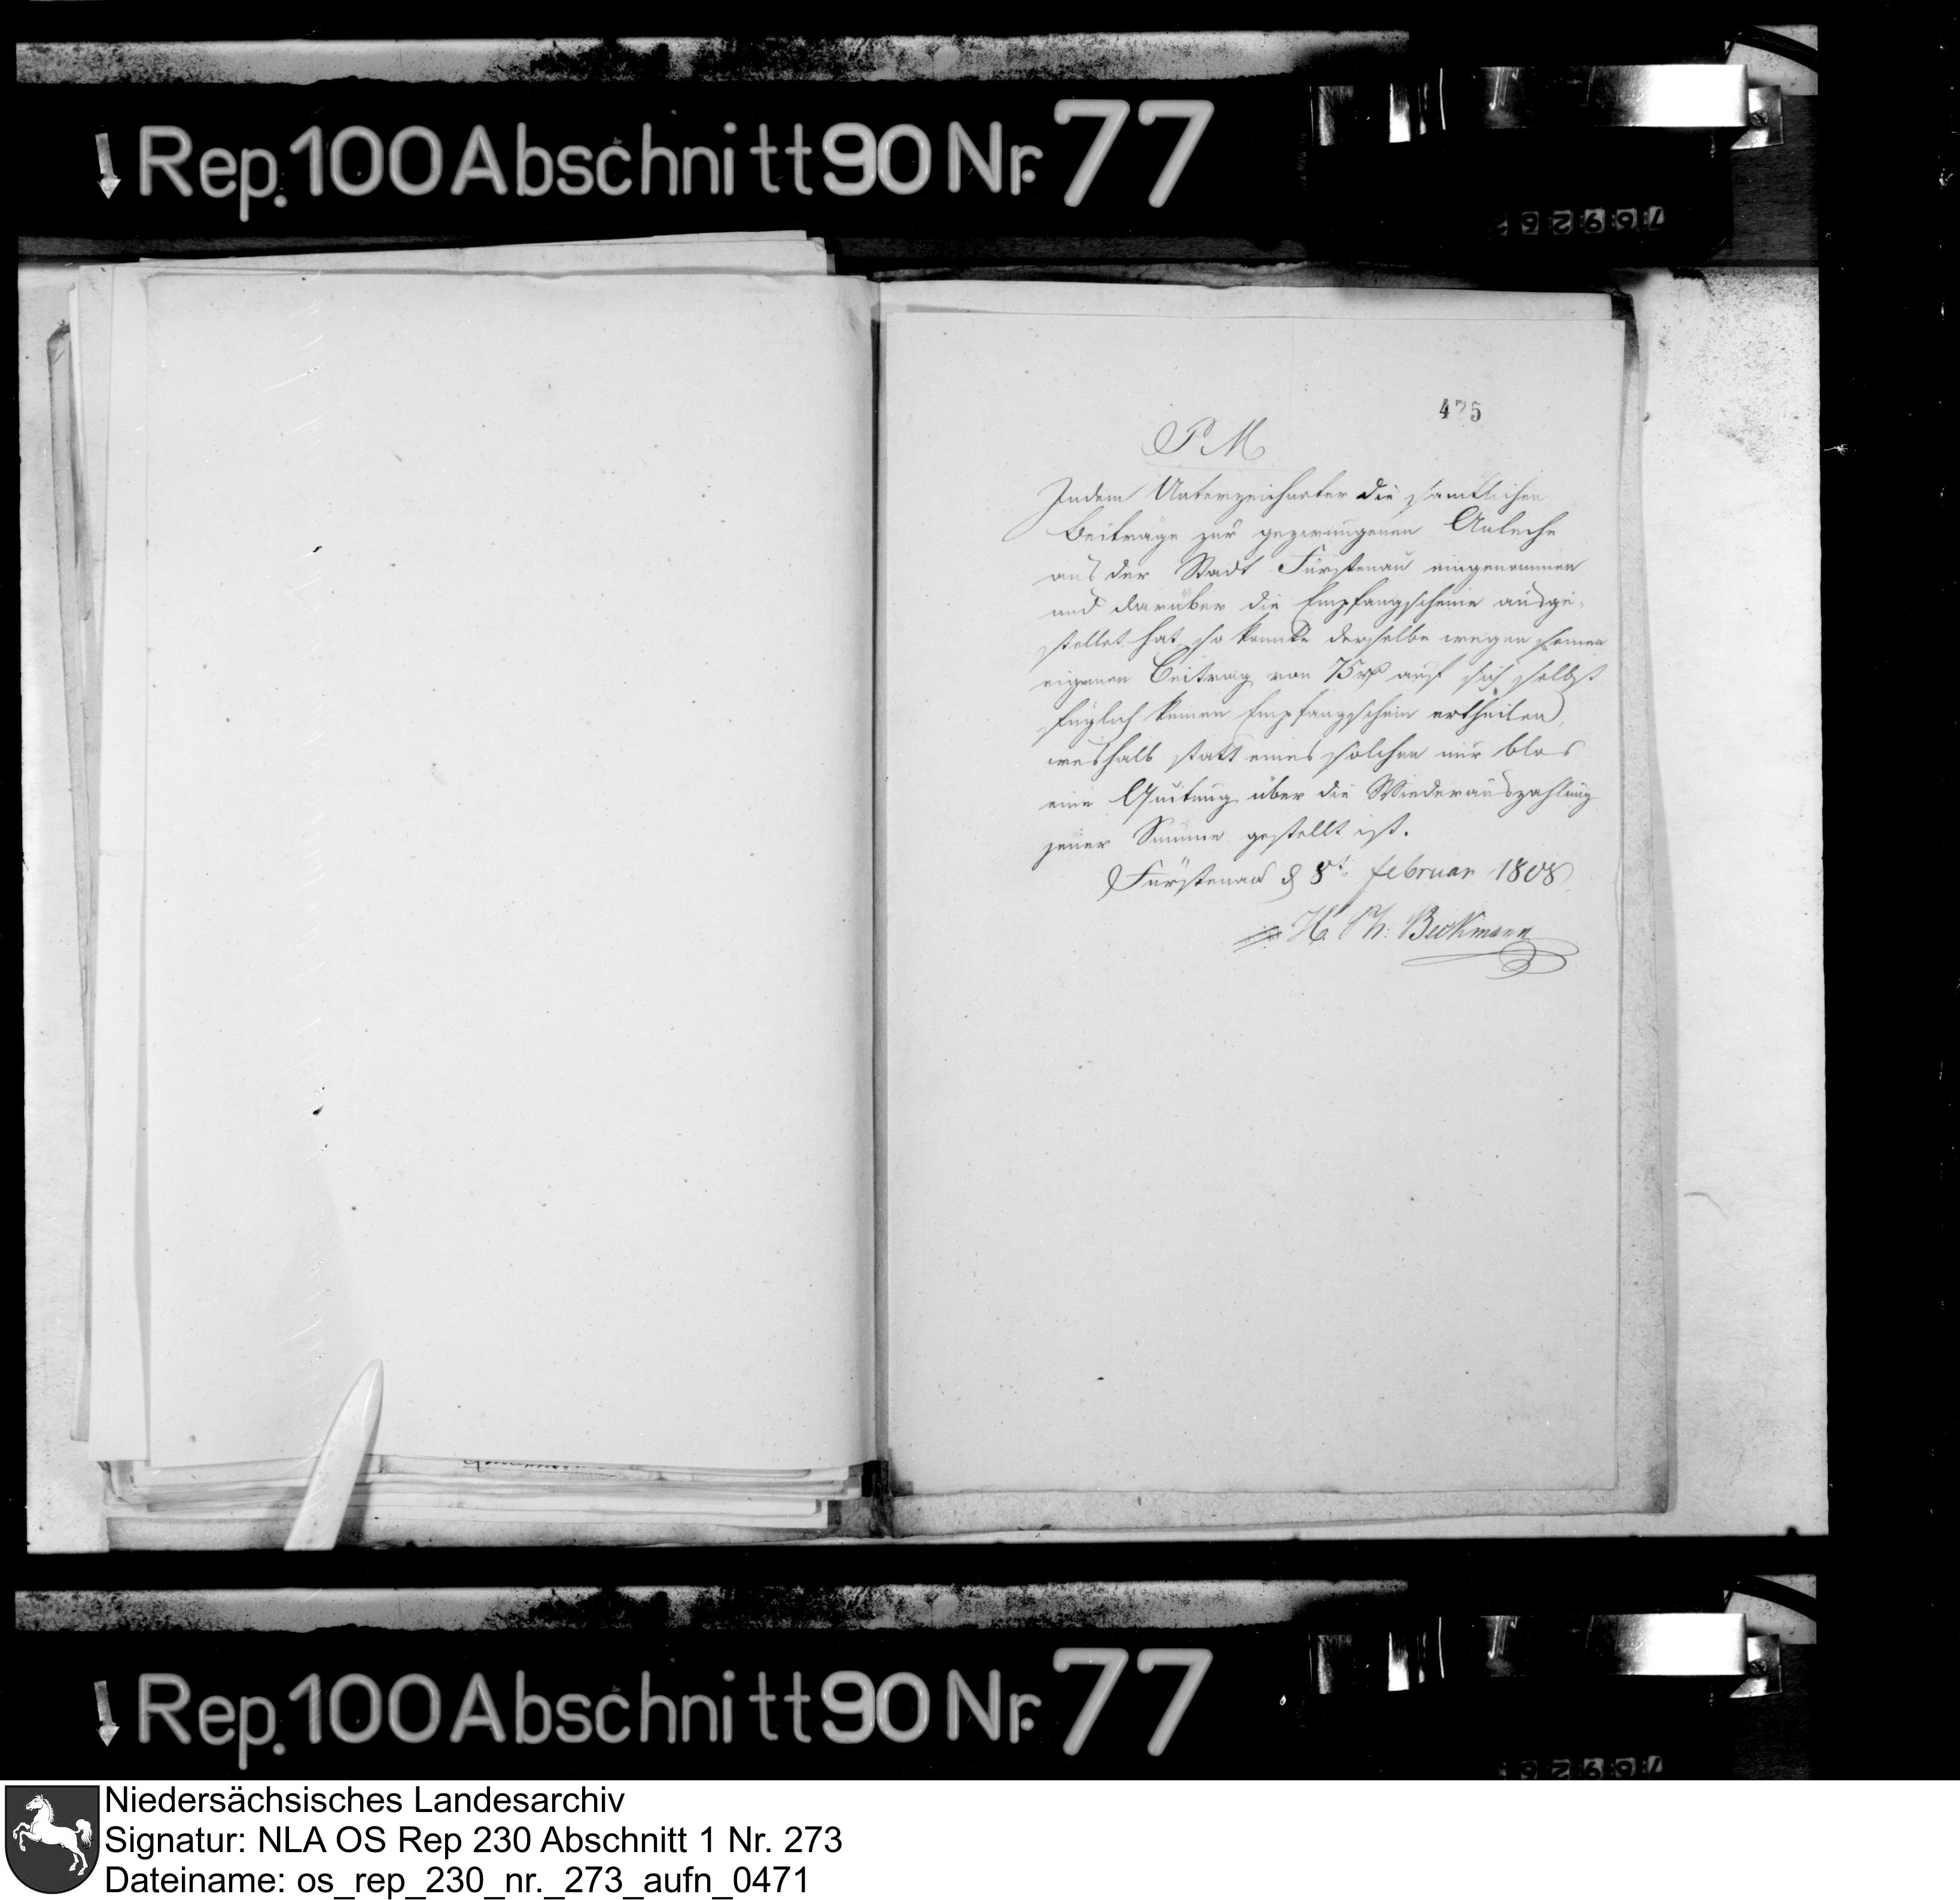 Rep. 100 Abschnitt 90 Nr. 77
475
P M
Indem Unterzeichneter die samtlichen
Beitrage zur gezwungenen Anleihe
aus der Stadt Fürstenau eingenommen
und darüber die Empfangscheine ausge-
stellet hat, so konnte derselbe wegen seinen
eigenen Beitrag von 75 rthlr auf sich selbst
füglich keinen Empfangschein ertheilen,
weshalb statt eines solchen nur blos
eine Quitung über die Wiederauszahlung
jener Summe gestellt ist.
Fürstenau d 8t. februar 1808
H. Ph: Beckmann
Rep. 100 Abschnitt 90 Nr. 77
Niedersächsisches Landesarchiv
Signatur: NLA OS Rep 230 Abschnitt 1 Nr. 273
Dateiname: os_rep_230_nr._273_aufn_0471